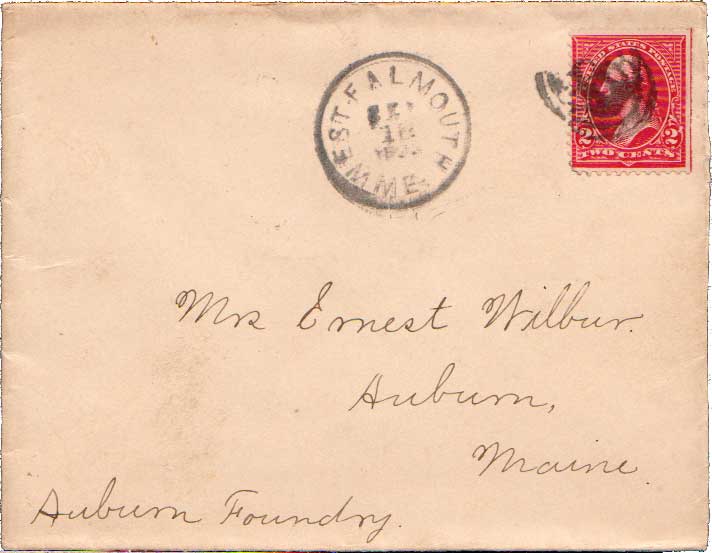 WEST-FALMOUTH
ME.
18
UNITED STATES POSTAGE
2 2
TWO CENTS
Mrs Ernest Wilbur.
Auburn,
Maine.
Auburn Foundry.